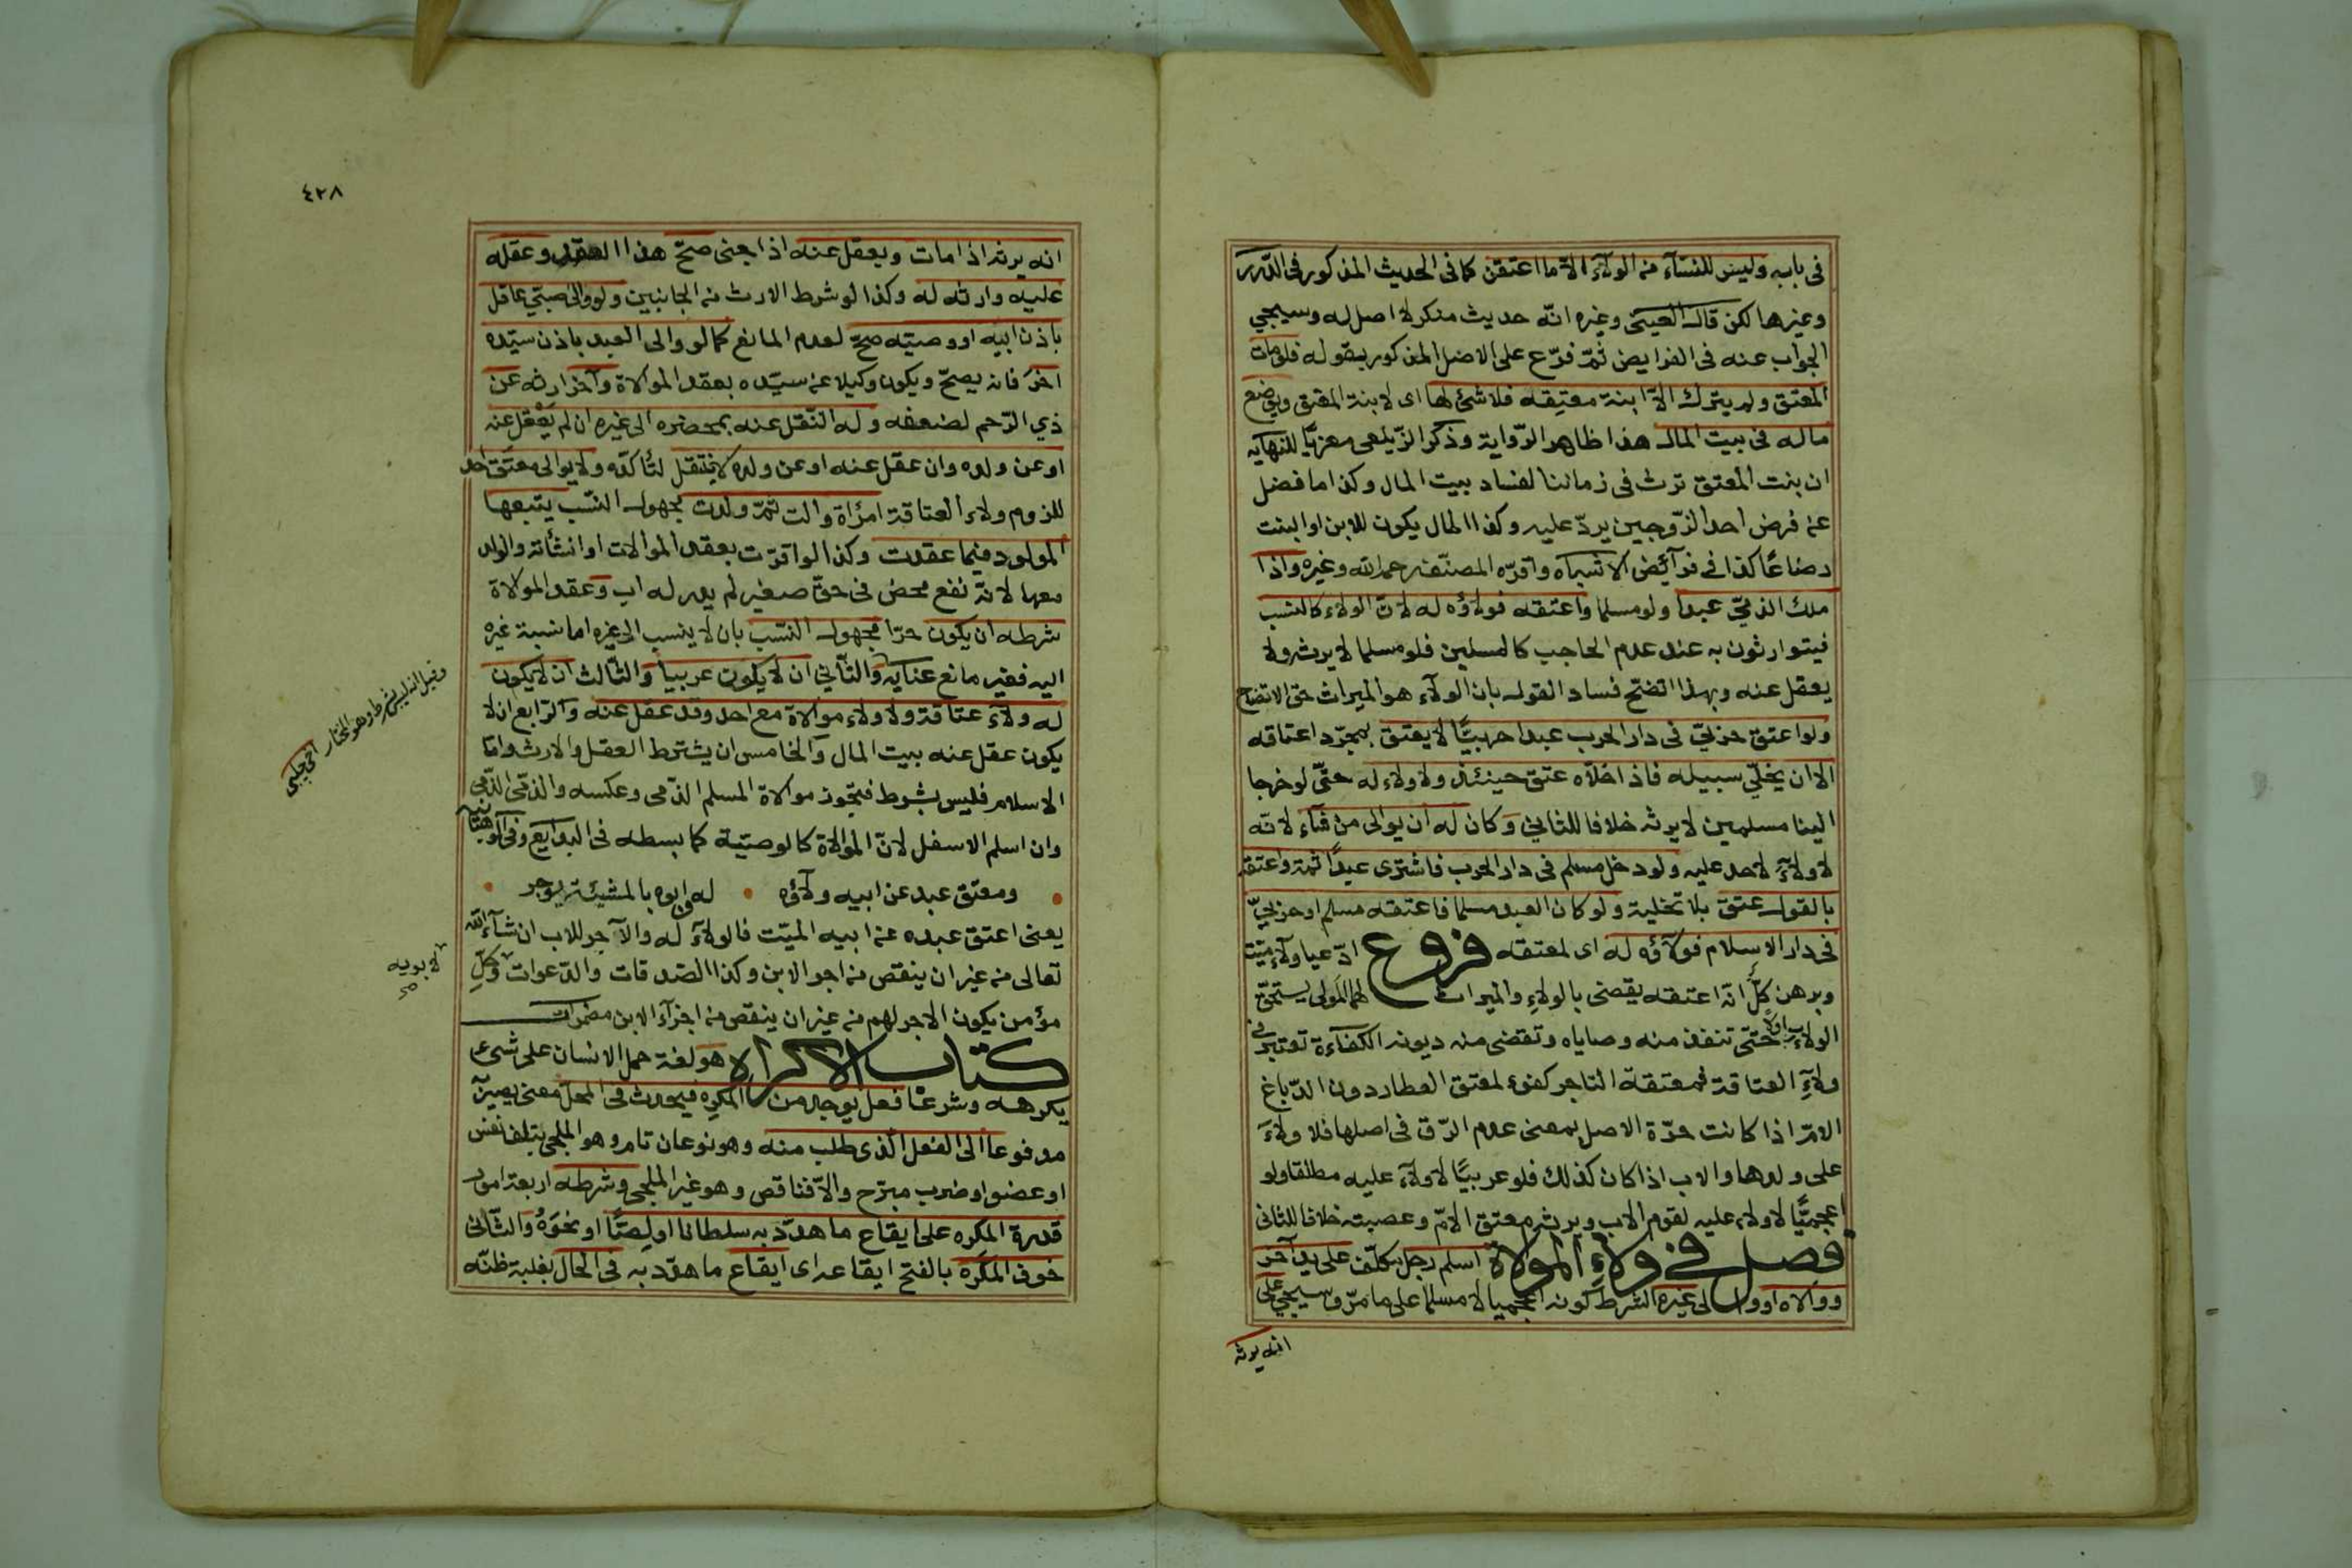 في بابه وليس للنسآء من الولآء الا ما اعتقن كما في الحديث المذكور في الدرر
وغيرها لكن قال العينى وغيره انه حديث منكر لا اصل له وسيجي
الجواب عنه في الفرايض ثمّ فرّع على الاصل المذكور بقوله فلو مات
المعتق ولم يترك الّا ابنة معتِقه فلا شئ لها اى لابنة المعتق ويوضع
ماله في بيت المال هذا ظاهر الرّواية وذكر الزّيلعى معزيًّا للنهايه
ان بنت المعتق ترث في زماننا لفساد بيت المال وكذا ما فضل
عن فرض احد الزّوجين يردّ عليه وكذا المال يكون للابن او البنت
رضاعًا كذا في فرآئض الاشباه واقرّه المصنّف رحمه الله وغيره واذا
ملك الذمّي عبدا ولو مسلما واعتقه فولاؤه له لانّ الولاء كالنسب
فيتوارثون به عند عدم الحاجب كالمسلمين فلو مسلما لا يرثه ولا
يعقل عنه وبهذا اتضح فساد القول بان الولآء هو الميراث حق الاتضاح
ولو اعتق حربيّ في دار الحرب عبدا حربيًّا لا يعتق بمجرّد اعتاقه
الا ان يخلّي سبيله فاذا خلّاه عتق حينئذ ولا ولاء له حتّى لو خرجا
الينا مسلمين لا يرثه خلافا للثاني وكان له ان يوالى من شآء لانه
لا ولآءَ لاحد عليه ولو دخل مسلم في دار الحرب فاشترى عبدًا ثمة واعتقه
بالقول عتق بلا تخلية ولو كان العبد مسلما فاعتقه مسلم او حربيّ
في دار الاسلام فولآؤه له اى لمعتقه فروع ادّعيا ولآء ميّت
وبرهن كلّ انّه اعتقه يقضى بالولاء والميراث لهما المولى يستحقّ
الولاء اولا حتّى تنفذ منه وصاياه وتقضى منه ديونه الكفآءة تعتبر في
ولآءِ العتاقة فمعتقة التاجر كفوء لمعتق العطار دون الدّباغ
الامّ اذا كانت حرّة الاصل بمعنى عدم الرّق في اصلها فلا ولآءَ
على ولدها والاب اذا كان كذلك فلو عربيًّا لا ولآء عليه مطلقا ولو
اعجميًّا لا ولاء عليه لقوم الاب ويرثه معتق الامّ وعصبته خلافا للثانى
فصل في ولاءِ الموالاة اسلم رجل مكلّف على يد آخر
ووالاه او والى غيره الشرط كونه اعجميا لا مسلما على ما مرّ وسيجئ على
انه يرثه
٤٢٨
انه يرثه اذا مات ويعقل عنه اذا جنى صحّ هذا العقد وعقله
عليه وارثه له وكذا لو شرط الارث من الجانبين ولو والى صبيّ عاقل
باذن ابيه او وصيّه صحّ لعدم المانع كما لو والى العبد باذن سيّده
اخرَ فانه يصحّ ويكون وكيلا عن سيّده بعقد الموالاة وآخر ارثه عن
ذي الرّحم لضعفه وله النّقل عنه بمحضره الى غيره ان لم يَعْقل عنه
او عن ولده وان عقل عنه او عن ولده لا ينتقل لتأكّده ولا يوالى معتَق احد
للزوم ولاء العتاقة امرأة والت ثمّ ولدت مجهول النّسب يتبعها
المولود فيما عقدت وكذا لو اقرّت بعقد الموالات او انشأته والولد
معها لانّه نفع محض في حقّ صغير لم يدر له اب وعقد الموالاة
شرطه ان يكون حرّا مجهول النّسب بان لا ينسب الى غيره اما نسبة غيره
اليه فغير مانع عنايه والثّاني ان لا يكون عربيا والثّالث ان لا يكون
له ولآء عتاقة ولا ولاء موالاة مع احد وقد عقل عنه والرّابع ان لا
يكون عقل عنه بيت المال والخامس ان يشترط العقل والارث وامّا
الاسلام فليس بشرط فتجوز موالاة المسلم الذّمى وعكسه والذّمّى الذّمّى
وان اسلم الاسفل لانّ الموالاة كالوصيّة كما بسطه في البدآيع وفي الوهبانيه
ومعتق عبد عن ابيه ولآؤه له وابوه بالمشيئة يؤجر
يعنى اعتق عبده عن ابيه الميّت فالولآء له والآجر للاب ان شآء الله
تعالى من غير ان ينقص من اجر الابن وكذا الصّدقات والدّعوات وكلّ
مؤمن يكون الاجر لهم من غير ان ينقص من اجزآء الابن مضمرات
كتاب الاكراه هو لغة حمل الانسان على شئ
يكرهه وشرعًا فعل يوجد من المكرِه فيحدث في المحل معنى يصير به
مدفوعا الى الفعل الّذى طلب منه وهو نوعان تام وهو الملجى بتلف نفس
او عضو او ضرب مبرّح والّا فناقص وهو غير الملجى وشرطه اربعة امور
قدرة المكره على ايقاع ما هدّد به سلطانا او لصّا او نحوَهُ والثّانى
خوف المكرَه بالفتح ايقاعه اى ايقاع ما هدّد به في الحال بغلبة ظنّه
وقيل الثالث ليس بشرط وهو المختار اخى جلبى
لابويه صح